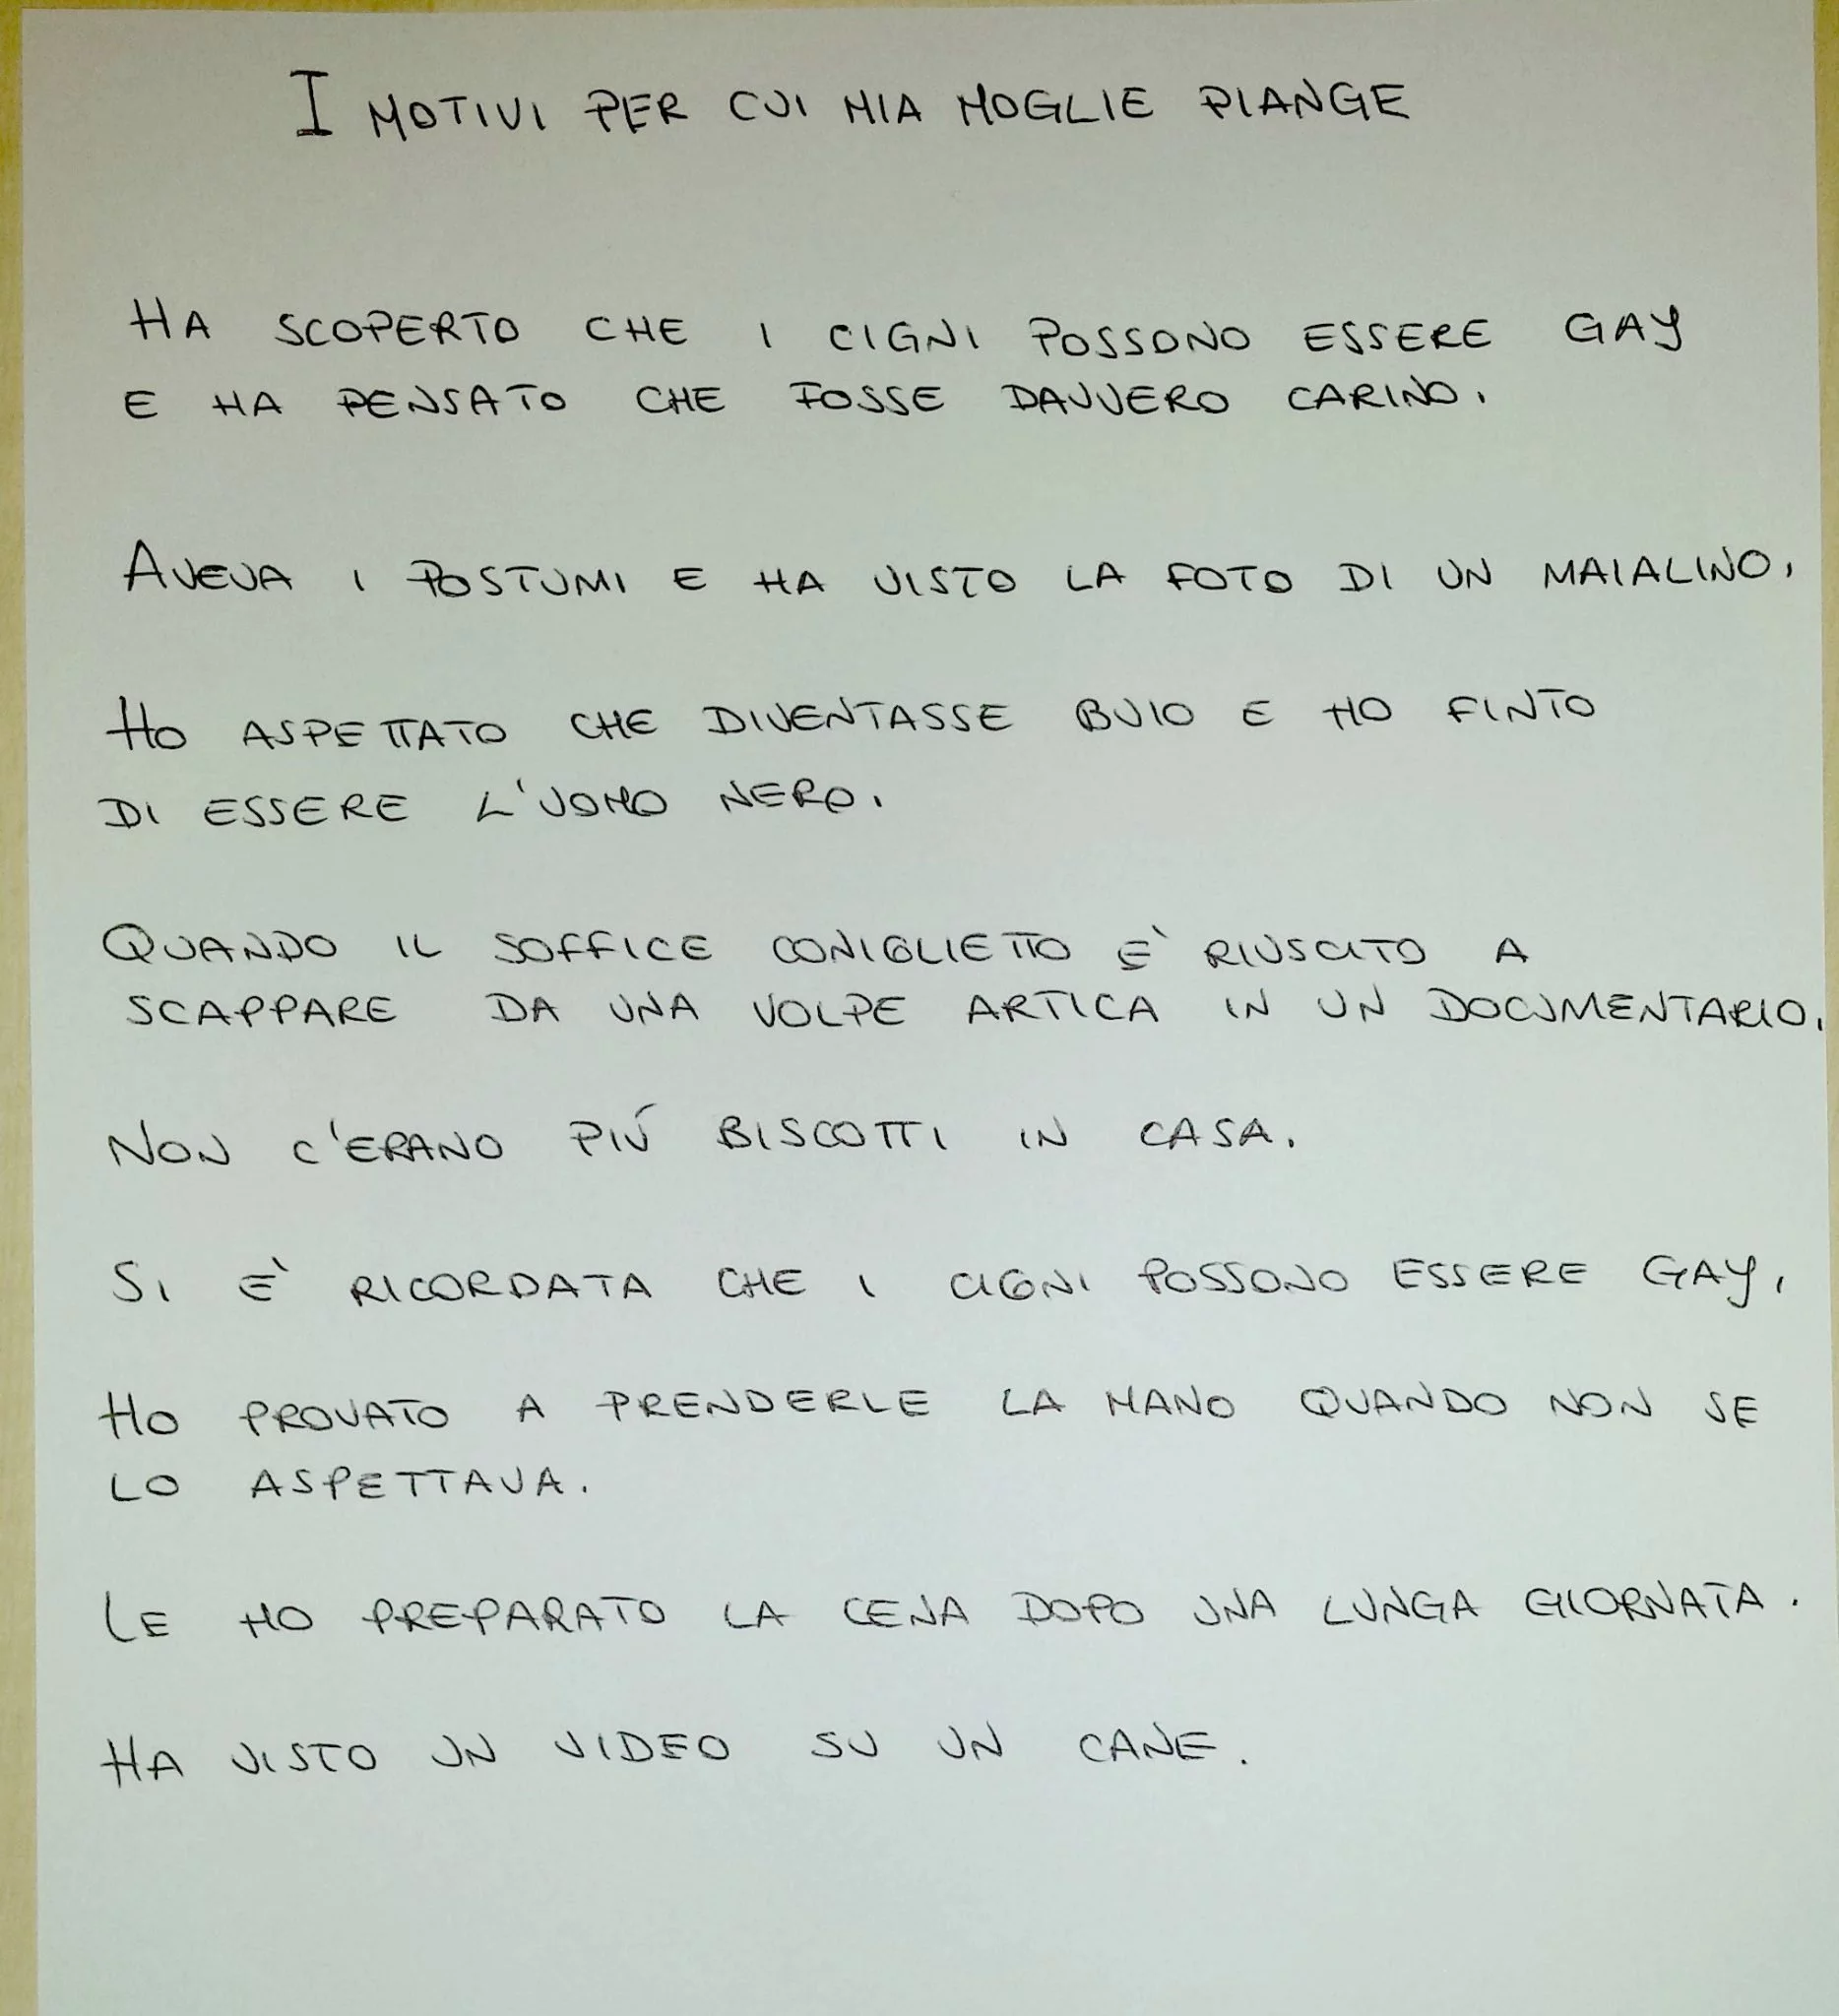 I MOTIVI PER CUI MIA MOGLIE PIANGE
HA SCOPERTO CHE I CIGNI POSSONO ESSERE GAY
E HA PENSATO CHE FOSSE DAVVERO CARINO.
AVEVA I POSTUMI E HA VISTO LA FOTO DI UN MAIALINO.
HO ASPETTATO CHE DIVENTASSE BUIO E HO FINTO
DI ESSERE L'UOMO NERO.
QUANDO IL SOFFICE CONIGLIETTO E' RIUSCITO A
SCAPPARE DA UNA VOLPE ARTICA IN UN DOCUMENTARIO.
NON C'ERANO PIÚ BISCOTTI IN CASA.
SI È RICORDATA CHE I CIGNI POSSONO ESSERE GAY.
HO PROVATO A PRENDERLE LA MANO QUANDO NON SE
LO ASPETTAVA.
LE HO PREPARATO LA CENA DOPO UNA LUNGA GIORNATA.
HA VISTO UN VIDEO SU UN CANE.